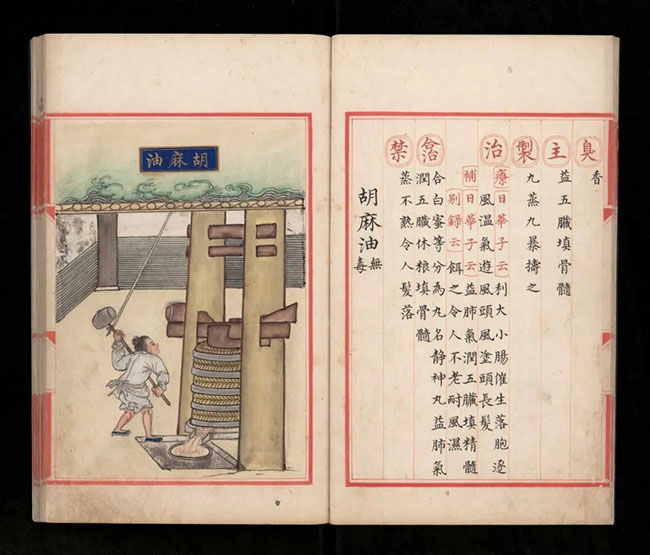 臭
香
主
益五臟填骨髓
製
九蒸九暴擣之
治
療日華子云利大小腸催生落胞逐
風溫氣遊風頭風塗頭長髮
補日華子云益肺氣潤五臟填精髓
别錄云餌之令人不老耐風濕
合治
合白蜜等分為丸名静神丸益肺氣
潤五臟休粮填骨髓
禁
蒸不熟令人髮落
胡麻油無毒
胡麻油